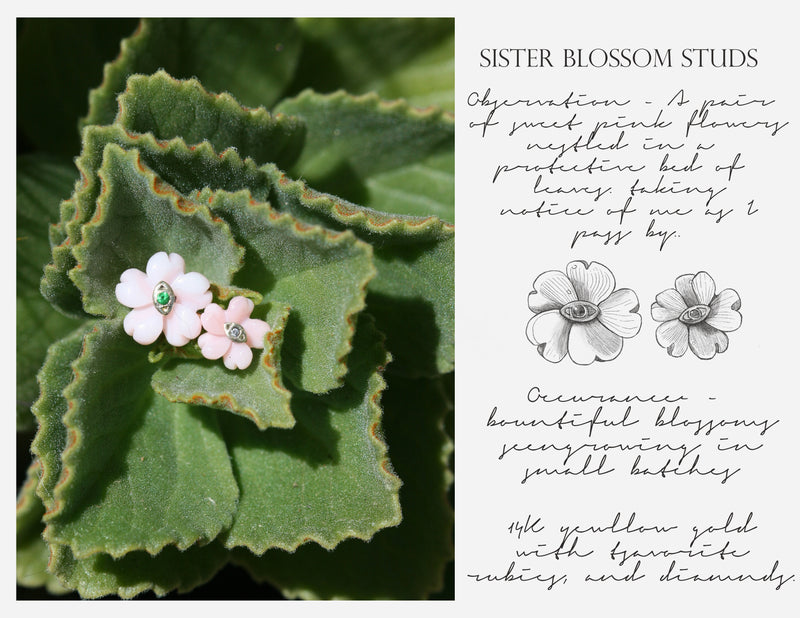 SISTER BLOSSOM STUDS
Observation - A pair
of sweet pink flowers
nestled in a
protective bed of
leaves. taking
notice of me as I
pass by..
Occurancee -
bountiful blossoms
seengrowing in
small batches
14K yewllow gold
with tsavorite
rubies, and diamonds.